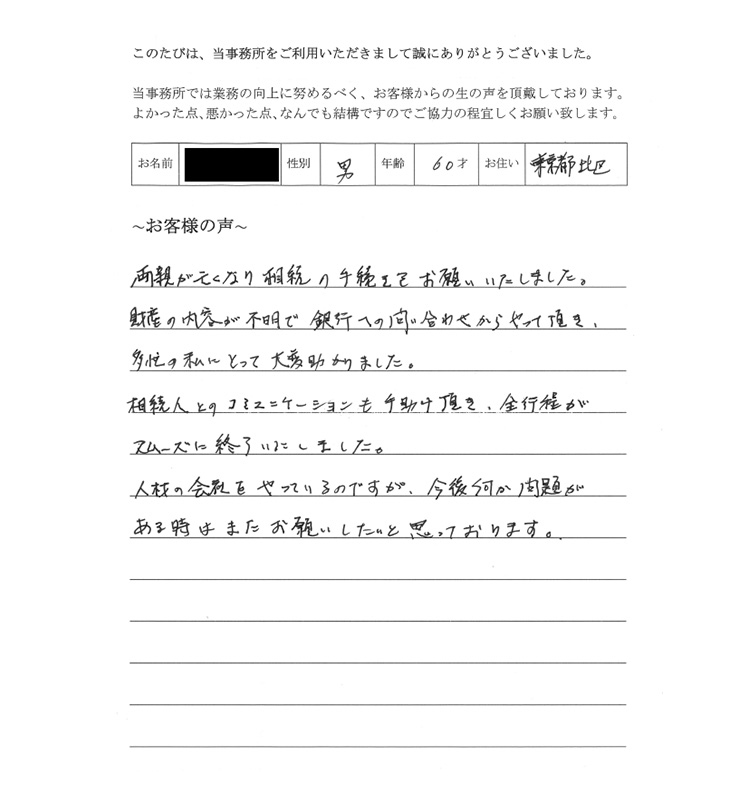 このたびは、当事務所をご利用いただきまして誠にありがとうございました。
当事務所では業務の向上に努めるべく、お客様からの生の声を頂戴しております。
よかった点、悪かった点、なんでも結構ですのでご協力の程宜しくお願い致します。
お名前 性別 男 年齢 60才 お住い 東京都北区
~お客様の声~
両親が亡くなり相続の手続きをお願いいたしました。
財産の内容が不明で銀行への問い合わせからやって頂き、
多忙の私にとって大変助かりました。
相続人とのコミュニケーションも手助け頂き、全行程が
スムーズに終了いたしました。
人材の会社をやっているのですが、今後何か問題が
ある時はまたお願いしたいと思っております。